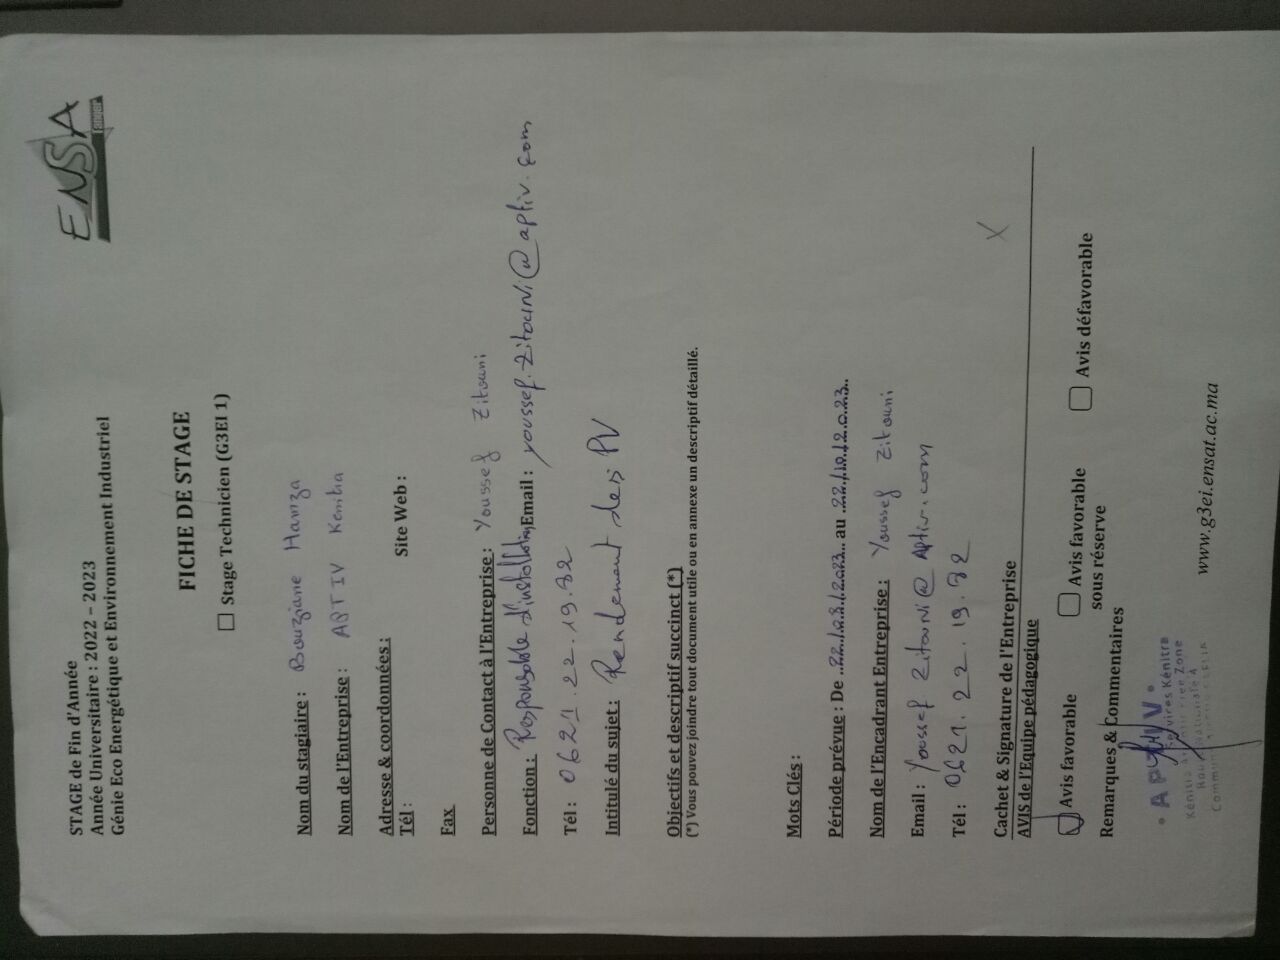 STAGE de Fin d'Année
Année Universitaire : 2022 – 2023
Génie Eco Energétique et Environnement Industriel
ENSA
Tanger
FICHE DE STAGE
☐ Stage Technicien (G3EI 1)
Nom du stagiaire : Bouziane Hamza
Nom de l'Entreprise : APTIV Kenitra
Adresse & coordonnées :
Tél : Site Web :
Fax
Personne de Contact à l'Entreprise : Youssef Zitouni
Fonction : Responsable d'installation Email : youssef.Zitouni@aptiv.com
Tél : 0621.22.19.82
Intitulé du sujet : Rendement des PV
Objectifs et descriptif succinct (*)
(*) Vous pouvez joindre tout document utile ou en annexe un descriptif détaillé.
Mots Clés :
Période prévue : De ..22/08/2023.. au ..22/10/2023..
Nom de l'Encadrant Entreprise : Youssef Zitouni
Email : Youssef Zitouni@Aptiv.com
Tél : 0621.22.19.82
X
Cachet & Signature de l'Entreprise
AVIS de l'Equipe pédagogique
Avis favorable ☐ Avis favorable sous réserve ☐ Avis défavorable
Remarques & Commentaires
• APTIV •
Services Kénitra
Kénitra Free Zone
Route Nationale 4
www.g3ei.ensat.ac.ma